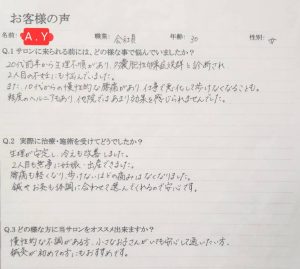 お客様の声
名前: A.Y 職業: 会社員 年齢: 30 性別: 女
Q.1 サロンに来られる前には、どの様な事で悩んでいましたか?
20代前半から生理不順があり、多嚢胞性卵巣症候群と診断され
2人目の不妊にも悩んでました。
また、10代からの慢性的な腰痛があり、仕事で悪化して歩けなくなることも。
軽度のヘルニアもあり、他院ではあまり効果を感じられませんでした。
Q.2 実際に治療・施術を受けてどうでしたか?
生理が安定し、冷えも改善しました。
2人目も無事に妊娠・出産できました。
腰痛も軽くなり、歩けないほどの痛みはなくなりました。
鍼やお灸も体調に合わせて選んでくれるので安心です。
Q.3 どの様な方に当サロンをオススメ出来ますか?
慢性的な不調がある方、小さなお子さんがいても安心して通いたい方、
鍼灸が初めての方にもおすすめです。